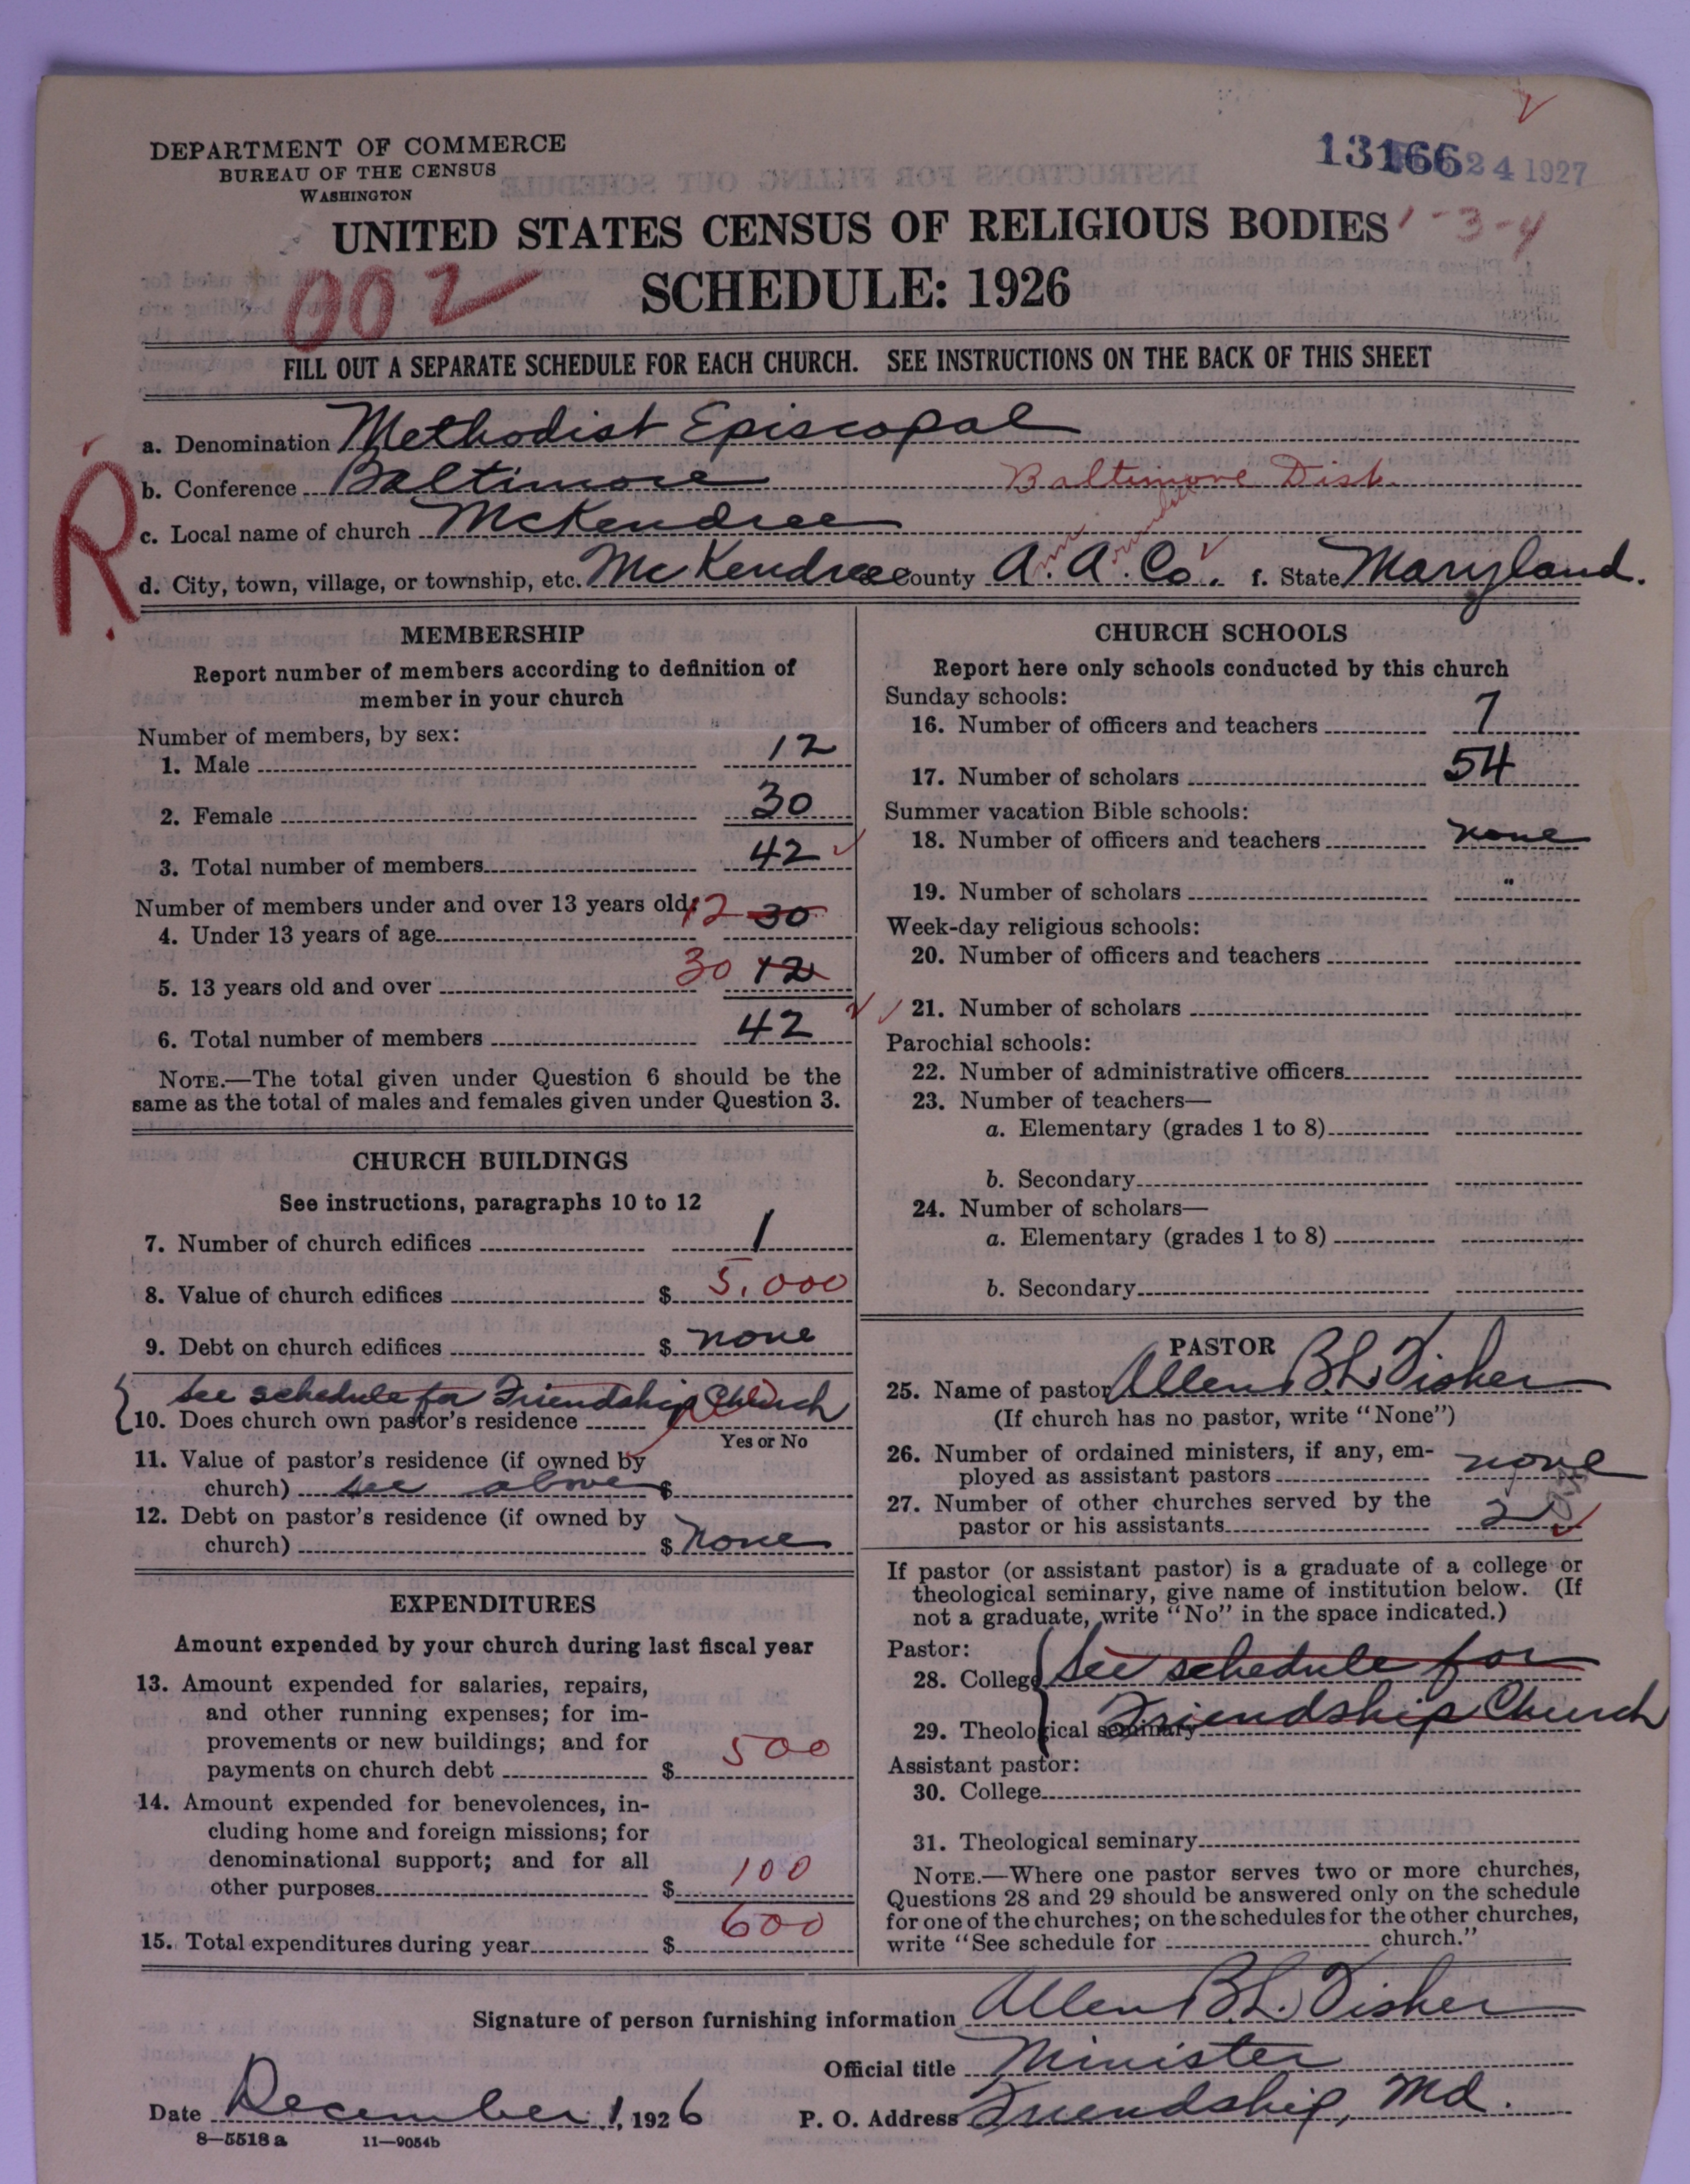 DEPARTMENT OF COMMERCE
BUREAU OF THE CENSUS
WASHINGTON
13166 24 1927
UNITED STATES CENSUS OF RELIGIOUS BODIES 1-3-4
002 SCHEDULE: 1926
FILL OUT A SEPARATE SCHEDULE FOR EACH CHURCH. SEE INSTRUCTIONS ON THE BACK OF THIS SHEET
R
a. Denomination Methodist Episcopal
b. Conference Baltimore Baltimore Dist.
c. Local name of church McKendree
d. City, town, village, or township, etc. McKendree County A. A. Co. f. State Maryland.
MEMBERSHIP
Report number of members according to definition of
member in your church
Number of members, by sex:
1. Male 12
2. Female 30
3. Total number of members 42
Number of members under and over 13 years old:
4. Under 13 years of age 12 30
5. 13 years old and over 30 12
6. Total number of members 42
NOTE.—The total given under Question 6 should be the
same as the total of males and females given under Question 3.
CHURCH BUILDINGS
See instructions, paragraphs 10 to 12
7. Number of church edifices 1
8. Value of church edifices $ 5,000
9. Debt on church edifices $ none
See schedule for Friendship Church
10. Does church own pastor's residence
Yes or No
11. Value of pastor's residence (if owned by
church) see above $
12. Debt on pastor's residence (if owned by
church) $ None
EXPENDITURES
Amount expended by your church during last fiscal year
13. Amount expended for salaries, repairs,
and other running expenses; for im-
provements or new buildings; and for
payments on church debt $ 500
14. Amount expended for benevolences, in-
cluding home and foreign missions; for
denominational support; and for all
other purposes $ 100
15. Total expenditures during year $ 600
CHURCH SCHOOLS
Report here only schools conducted by this church
Sunday schools:
16. Number of officers and teachers 7
17. Number of scholars 54
Summer vacation Bible schools:
18. Number of officers and teachers none
19. Number of scholars "
Week-day religious schools:
20. Number of officers and teachers
21. Number of scholars
Parochial schools:
22. Number of administrative officers
23. Number of teachers—
a. Elementary (grades 1 to 8)
b. Secondary
24. Number of scholars—
a. Elementary (grades 1 to 8)
b. Secondary
PASTOR
25. Name of pastor Allen B. L. Fisher
(If church has no pastor, write "None")
26. Number of ordained ministers, if any, em-
ployed as assistant pastors none
27. Number of other churches served by the
pastor or his assistants 2
If pastor (or assistant pastor) is a graduate of a college or
theological seminary, give name of institution below. (If
not a graduate, write "No" in the space indicated.)
Pastor:
28. College See schedule for
29. Theological seminary Friendship Church
Assistant pastor:
30. College
31. Theological seminary
NOTE.—Where one pastor serves two or more churches,
Questions 28 and 29 should be answered only on the schedule
for one of the churches; on the schedules for the other churches,
write "See schedule for church."
Signature of person furnishing information Allen B. L. Fisher
Official title Minister
Date December 1, 1926 P. O. Address Friendship, Md.
8—5518 a 11—9054b